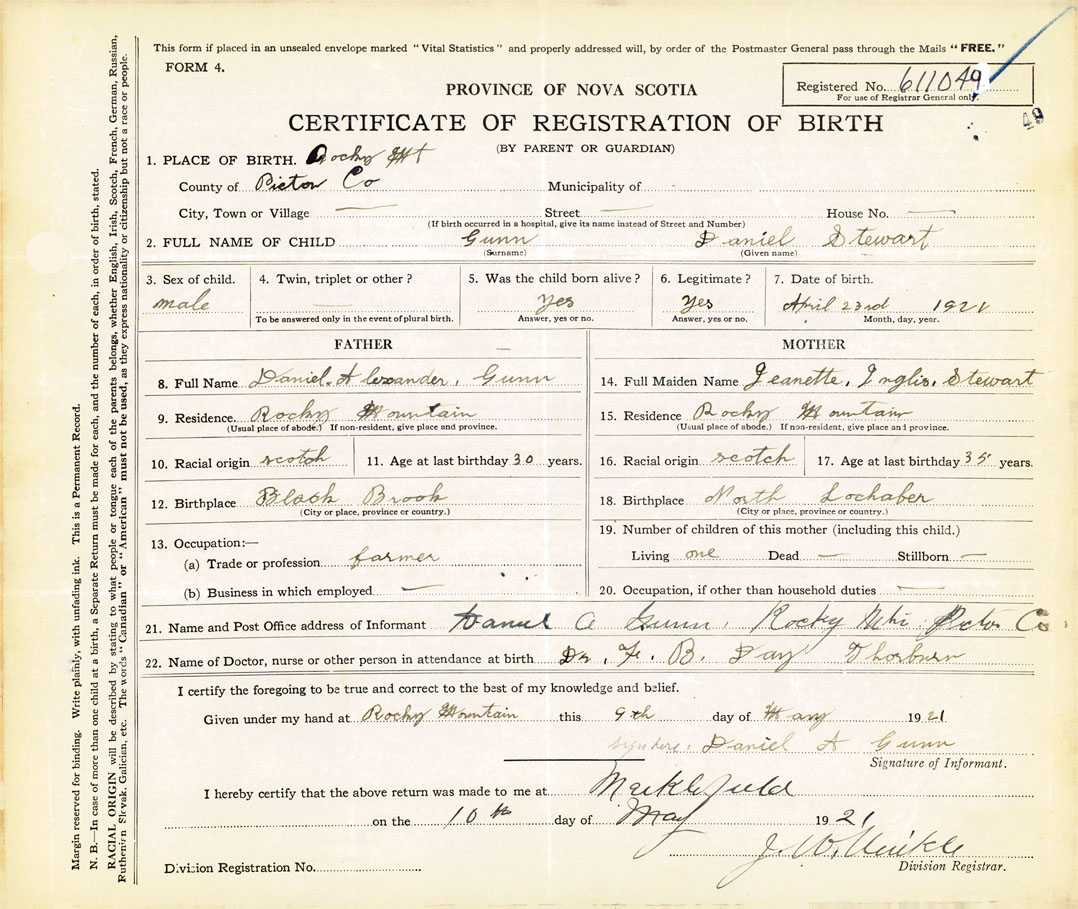 This form if placed in an unsealed envelope marked "Vital Statistics" and properly addressed will, by order of the Postmaster General pass through the Mails "FREE."
FORM 4.
Registered No. 611049
For use of Registrar General only.
49
PROVINCE OF NOVA SCOTIA
CERTIFICATE OF REGISTRATION OF BIRTH
(BY PARENT OR GUARDIAN)
1. PLACE OF BIRTH. Rocky Mt
County of Pictou Co Municipality of
City, Town or Village — Street — House No. —
(If birth occurred in a hospital, give its name instead of Street and Number)
2. FULL NAME OF CHILD Gunn Daniel Stewart
(Surname) (Given name)
3. Sex of child. 4. Twin, triplet or other? 5. Was the child born alive? 6. Legitimate? 7. Date of birth.
male — Yes Yes April 23rd 1921
To be answered only in the event of plural birth. Answer, yes or no. Answer, yes or no. Month, day, year.
FATHER
8. Full Name Daniel. Alexander. Gunn
9. Residence. Rocky Mountain
(Usual place of abode.) If non-resident, give place and province.
10. Racial origin scotch 11. Age at last birthday 30 years.
12. Birthplace Black Brook
(City or place, province or country.)
13. Occupation:—
(a) Trade or profession farmer
(b) Business in which employed —
MOTHER
14. Full Maiden Name Jeanette. Inglis. Stewart
15. Residence Rocky Mountain
(Usual place of abode.) If non-resident, give place and province.
16. Racial origin scotch 17. Age at last birthday 35 years.
18. Birthplace North Lochaber
(City or place, province or country.)
19. Number of children of this mother (including this child.)
Living one Dead — Stillborn —
20. Occupation, if other than household duties —
21. Name and Post Office address of Informant Daniel A Gunn. Rocky Mtn Pictou Co
22. Name of Doctor, nurse or other person in attendance at birth Dr. F. B. Day Thorburn
I certify the foregoing to be true and correct to the best of my knowledge and belief.
Given under my hand at Rocky Mountain this 9th day of May 1921
Daniel A Gunn
Signature of Informant.
I hereby certify that the above return was made to me at
on the 10th day of May 1921
J. W.
Division Registrar.
Division Registration No.
Margin reserved for binding. Write plainly, with unfading ink. This is a Permanent Record.
N. B.—In case of more than one child at a birth, a Separate Return must be made for each, and the number of each, in order of birth, stated.
RACIAL ORIGIN will be described by stating to what people or tongue each of the parents belongs, whether English, Irish, Scotch, French, German, Russian,
Ruthenian Slovak, Galician, etc. The words "Canadian" or "American" must not be used, as they express nationality or citizenship but not a race or people.